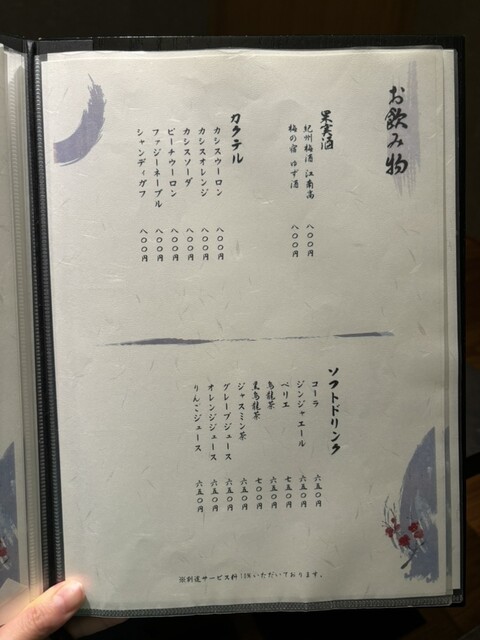 お飲み物
果実酒
紀州梅酒 江南高 八〇〇円
梅の宿 ゆず酒 八〇〇円
カクテル
カシスウーロン 八〇〇円
カシスオレンジ 八〇〇円
カシスソーダ 八〇〇円
ピーチウーロン 八〇〇円
ファジーネーブル 八〇〇円
シャンディガフ 八〇〇円
ソフトドリンク
コーラ 六五〇円
ジンジャエール 六五〇円
ペリエ 七五〇円
烏龍茶 六五〇円
黒烏龍茶 七〇〇円
ジャスミン茶 六五〇円
グレープジュース 六五〇円
オレンジジュース 六五〇円
りんごジュース 六五〇円
※別途サービス料
いただいております。